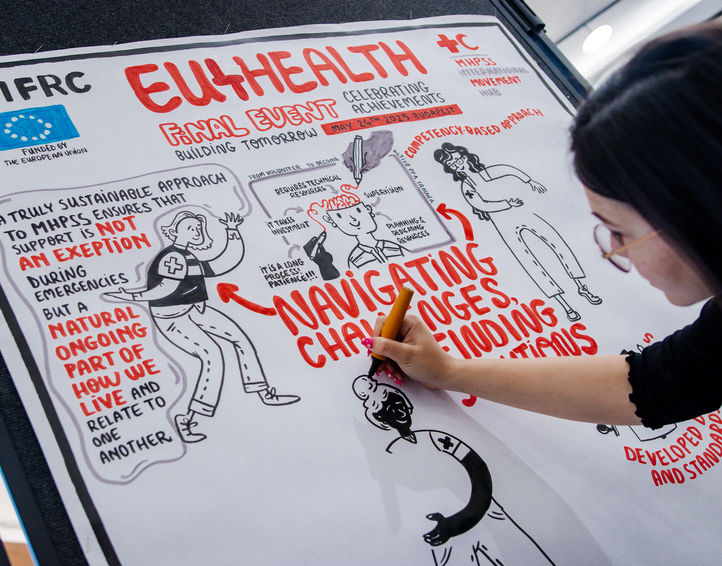 IFRC
FUNDED BY
THE EUROPEAN UNION
EU4HEALTH
FINAL EVENT
BUILDING TOMORROW
CELEBRATING
ACHIEVEMENTS
MAY 26TH 2025 BUDAPEST
+C
MHPSS
INTERNATIONAL
MOVEMENT
HUB
COMPETENCY-BASED APPROACH
A TRULY SUSTAINABLE APPROACH
TO MHPSS ENSURES THAT
SUPPORT IS NOT
AN EXEPTION
DURING
EMERGENCIES
BUT A
NATURAL
ONGOING
PART OF
HOW WE
LIVE AND
RELATE TO
ONE
ANOTHER
FROM VOLUNTEER TO BECOME
ACTIVE PFA TRAINER
REQUIRES TECHNICAL
RESOURCES
SUPERVISION
IT TAKES
INVESTMENT
PLANNING &
DEDICATING
RESOURCES
IT IS A LONG
PROCESS!
PATIENCE!!!
NAVIGATING
FINDING
DEVELOPED
AND STANDA